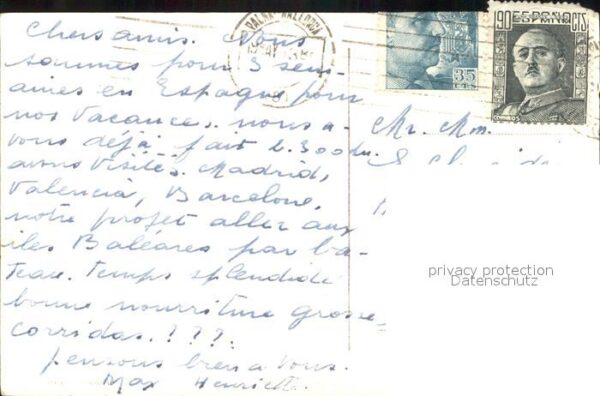 PALMA MALLORCA
35
90 ESPAÑA CTS
chers amis. Nous
sommes pour 3 sem-
aines en Espagne pour
nos vacances. nous a-
vons déjà fait
avons visités. Madrid,
Valencia, Barcelone,
notre projet aller aux
iles Baléares par ba-
teau. temps splendide
bonne nourriture grosse
corridas.???.
pensons bien a vous.
Max Henriette.
Mr. Mm.
privacy protection
Datenschutz